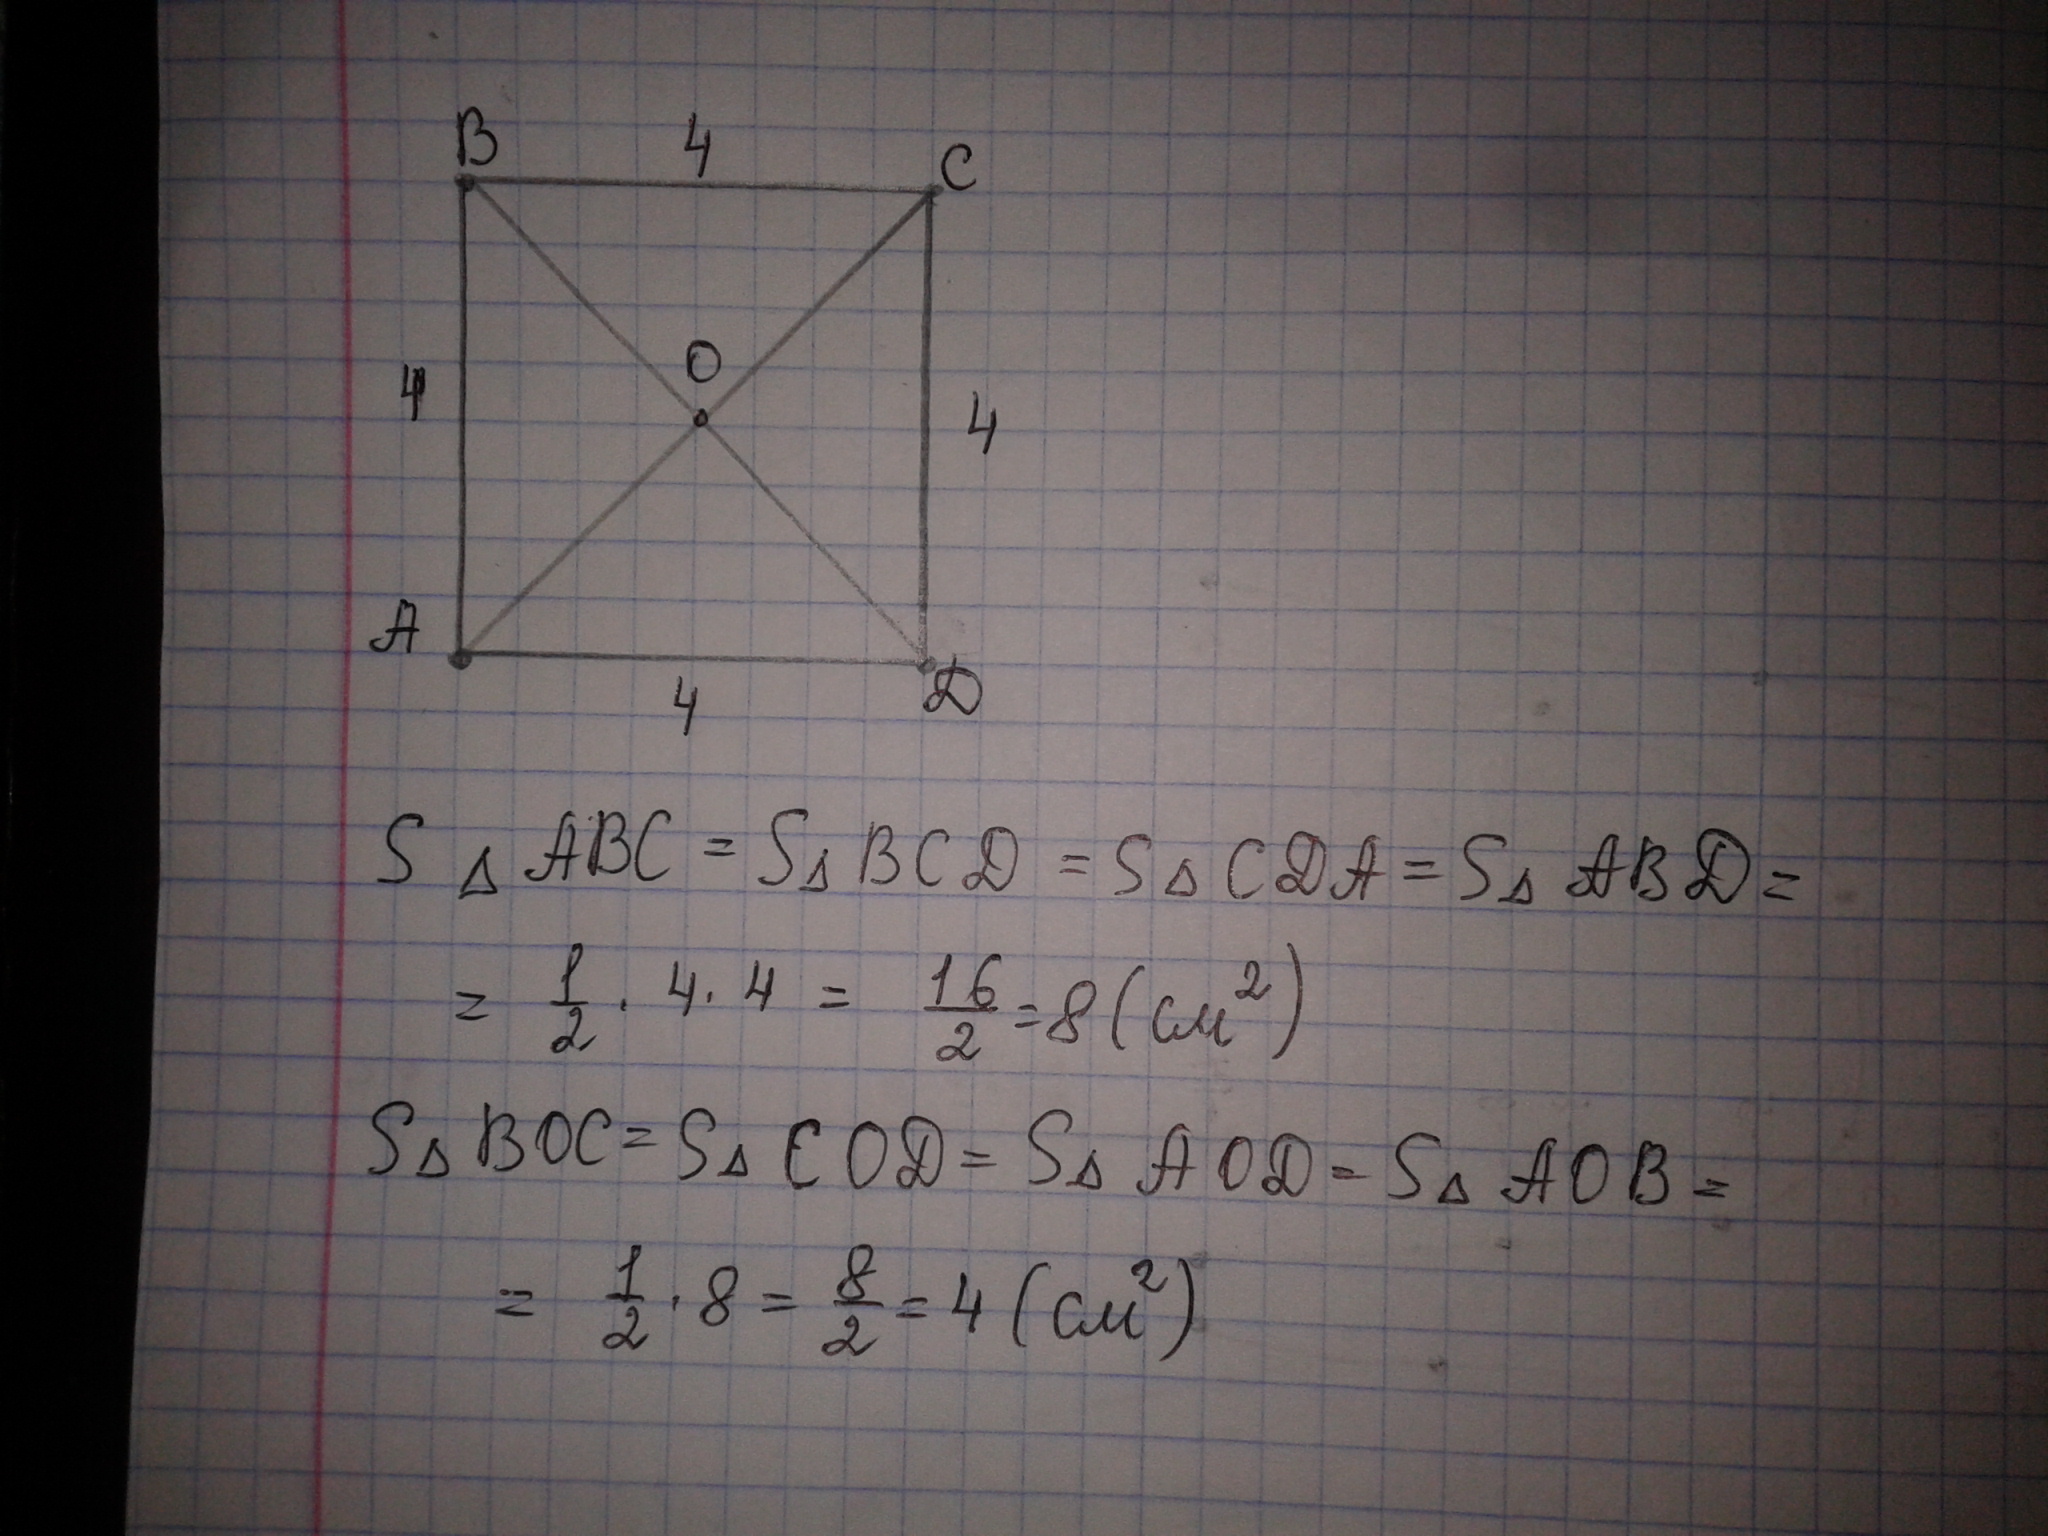 B 4 C
O
4 4
A
4 D
S △ ABC = S△ BCD = S△ CDA = S△ ABD =
= 1/2 · 4 · 4 = 16/2 = 8 (см²)
S△ BOC = S△ COD = S△ AOD = S△ AOB =
= 1/2 · 8 = 8/2 = 4 (см²)